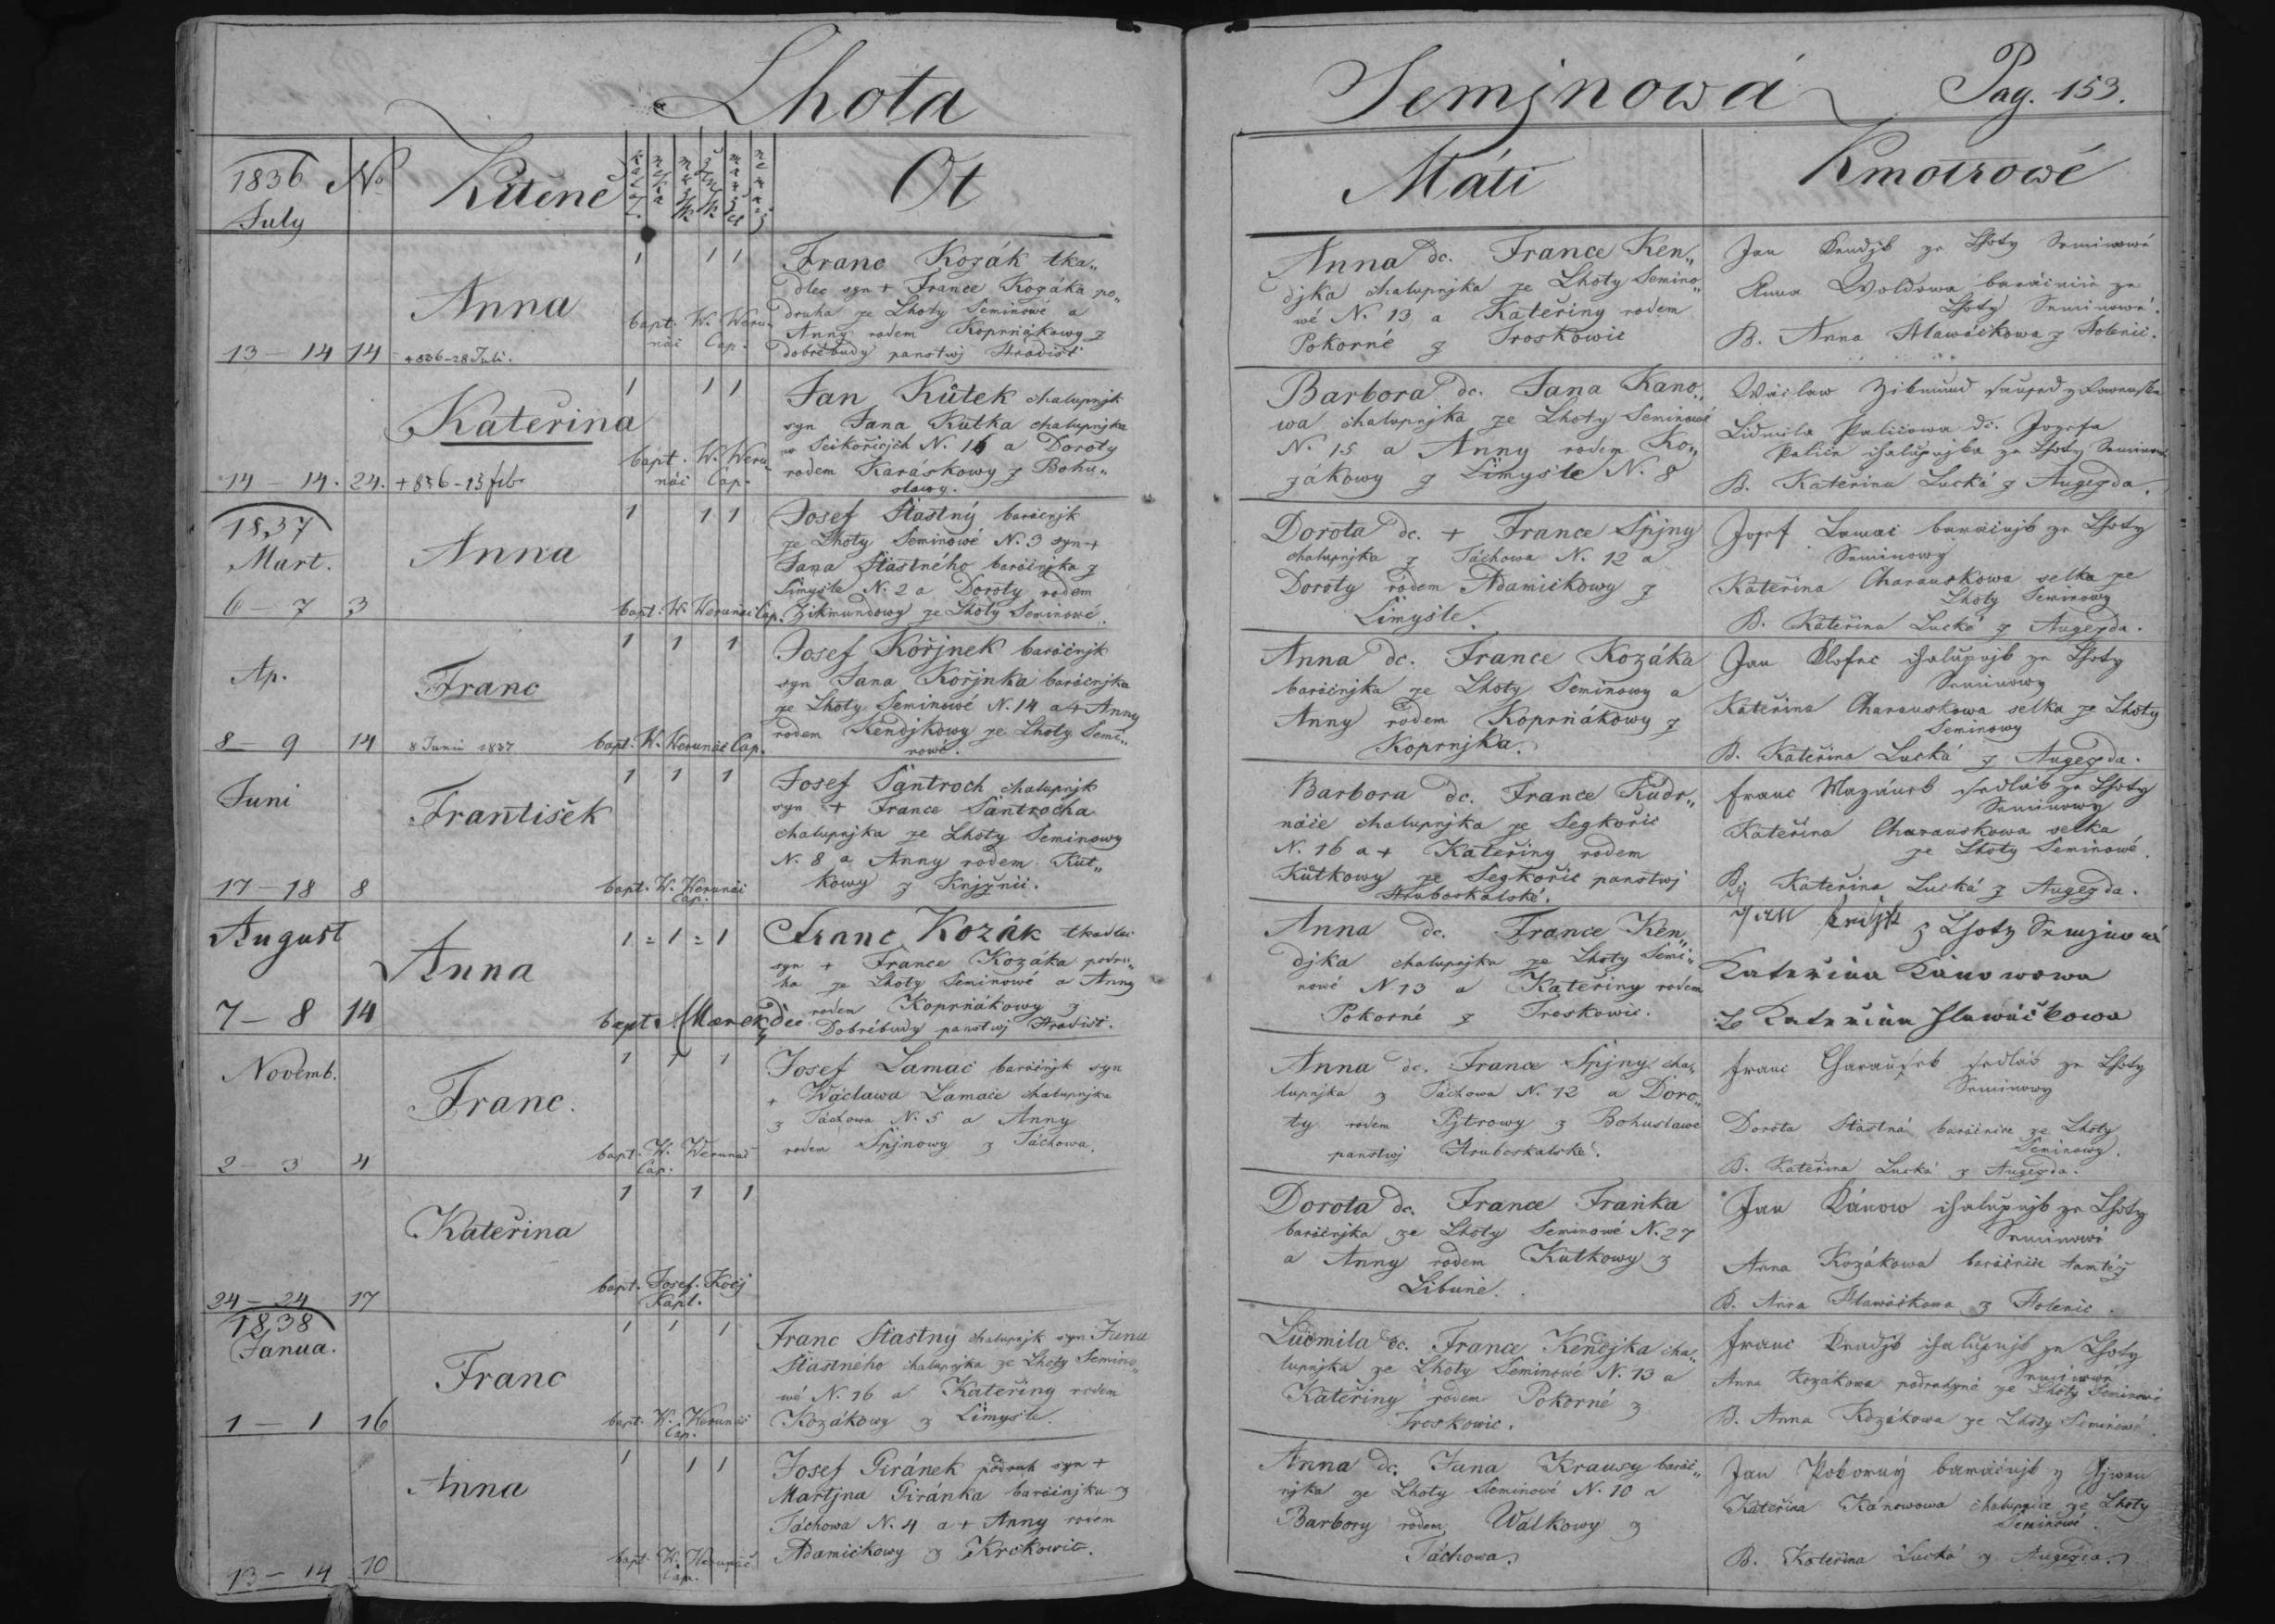 Lhota
1836 No
July
Křtěnec
Ot
Anna
1 1 1
Franc Kozák tka„
dlec syn + France Kozáka po„
druha ze Lhoty Seminowé a
Anny rodem Koprňákowy z
dobrébudy panstwj Hradišť
bapt. W. Weru„
náč Cap.
13 – 14 14 + 836–28 Juli.
Kateřina
1 1 1
Jan Kůtek chalupnjk
syn Jana Kůtka chalupnjka
w Seikořicjch N. 16 a Doroty
rodem Karaskowy z Bohu„
slawy.
bapt. W. Weru„
náč Cap.
14 – 14. 24. + 836–13 feb.
1837
Mart.
Anna
1 1 1
Josef Šťastný baráčnjk
ze Lhoty Seminowé N. 3 syn +
Jana Šťastného baráčnjka z
Limyšle N. 2 a Doroty rodem
Zikmundowy ze Lhoty Seminowé.
6 – 7 3
bapt. W. Werunáč Cap.
Ap.
Franc
1 1 1
Josef Kořjnek baráčnjk
syn Jana Kořjnka baráčnjka
ze Lhoty Seminowé N. 14 a + Anny
rodem Kendjkowy ze Lhoty Semi„
nowé.
8 – 9 14 8 Junii 1837
bapt. W. Werunáč Cap.
Juni
František
1 1 1
Josef Šantroch chalupnjk
syn + France Šantrocha
chalupnjka ze Lhoty Seminowy
N. 8 a Anny rodem Kut„
kowy z Knjžnic.
17 – 18 8
bapt. W. Werunáč
Cap.
August
Anna
1 = 1 = 1
Franc Kozák tkadlec
syn + France Kozáka podru„
ha ze Lhoty Seminowé a Anny
rodem Koprňákowy z
Dobrébudy panstwj Hradišť.
7 – 8 14
Novemb.
Franc.
1 1 1
Josef Lamač baráčnjk syn
+ Wáclawa Lamače chalupnjka
z Táchowa N. 5 a Anny
rodem Spjnowy z Táchowa.
2 – 3 4
bapt. W. Werunáč
Cap.
Kateřina
1 1 1
bapt. Josef. Kočj
Kapl.
24 – 24 17
1838
Janua.
Franc
1 1 1
Franc Šťastny chalupnjk syn Jana
Šťastného chalupnjka ze Lhoty Semino„
wé N. 16 a Kateřiny rodem
Kozákowy z Limyšle.
1 – 1 16
bapt. W. Werunáč
Cap.
Anna
1 1 1
Josef Giránek podruh syn +
Martjna Giránka baráčnjka z
Táchowa N. 4 a + Anny rodem
Adamičkowy z Krčkowic.
13 – 14 10
bapt. W. Werunáč
Cap.
Semjnowá
Pag. 153.
Máti
Kmotrowé
Anna dc. France Ken„
djka chalupnjka ze Lhoty Semino„
wé N. 13 a Kateřiny rodem
Pokorné z Troskowic
Jan Kendjk ze Lhoty Seminowé
Anna Woldowa baráčnice ze
Lhoty Seminowé.
B. Anna Hlawáčkowa z Holenic.
Barbora dc. Jana Kano„
wa chalupnjka ze Lhoty Seminowé
N. 15 a Anny rodem Ko„
zákowy z Limyšle N. 8
Wáclaw Zikmund
Lidmila Paličowa dc. Jozefa
Paliče chalupnjka ze Lhoty Seminowé
B. Kateřina Lucká z Augezda.
Dorota dc. + France Spjny
chalupnjka z Táchowa N. 12 a
Doroty rodem Adamičkowy z
Limyšle.
Jozef Lamač baráčnjk ze Lhoty
Seminowy
Kateřina Charauskowa selka ze
Lhoty Seminowy
B. Kateřina Lucká z Augezda.
Anna dc. France Kozáka
baráčnjka ze Lhoty Seminowy a
Anny rodem Koprňákowy z
Koprnjka.
Jan Klofec chalupnjk ze Lhoty
Seminowy
Kateřina Charauskowa selka ze Lhoty
Seminowy
B. Kateřina Lucká z Augezda.
Barbora dc. France Kudr„
náče chalupnjka ze Segkořic
N. 16 a + Kateřiny rodem
Kůtkowy ze Segkořic panstwj
Hruboskalské.
Franc Mazánek sedlák ze Lhoty
Seminowy
Kateřina Charauskowa selka
ze Lhoty Seminowé.
B. Kateřina Lucká z Augezda.
Anna dc. France Ken„
djka chalupnjka ze Lhoty Semi„
nowé N 13 a Kateřiny rodem
Pokorné z Troskowic.
Jan z Lhoty Semjnowé
Kateřina Kánowowa
Kateřina Hlawáčkowa
Anna dc. France Spjny cha„
lupnjka z Táchowa N. 12 a Doro„
ty rodem Pytrowy z Bohuslawě
panstwj Hruboskalské.
Franc Charausek sedlák ze Lhoty
Seminowy
Dorota Šťastná baráčnice ze Lhoty
Seminowy.
B. Kateřina Lucká z Augezda.
Dorota dc. France Fraňka
baráčnjka ze Lhoty Seminowé N. 27
a Anny rodem Kutkowy z
Libuně.
Jan Kánow chalupnjk ze Lhoty
Seminowé
Anna Kozákowa baráčnice tamtéž
B. Anna Hlawáčkowa z Holenic.
Ludmila dc. France Kendjka cha„
lupnjka ze Lhoty Seminowé N. 13 a
Kateřiny rodem Pokorné z
Troskowic.
Franc Kendjk chalupnjk ze Lhoty
Seminowé
Anna Kozákowa podruhyně ze Lhoty Seminowé
B. Anna Kozákowa ze Lhoty Seminowé.
Anna dc. Jana Krausy baráč„
njka ze Lhoty Seminowé N. 10 a
Barbory rodem Wálkowy z
Táchowa.
Jan Pokorný baráčnjk z
Kateřina Kánowowa chalupnice ze Lhoty
Seminowé.
B. Kateřina Lucká z Augezda.